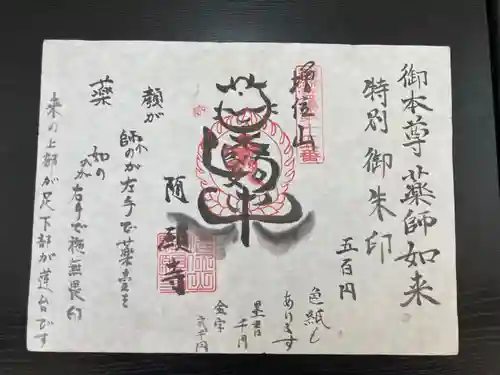 御本尊薬師如来
特別御朱印
五百円
色紙も
あります
墨書
千円
金字
弐千円
増位山
随願寺
薬
顔が
師の
が左手で薬壺を
如の
が右手で施無畏印
来の上部が足下部が蓮台です